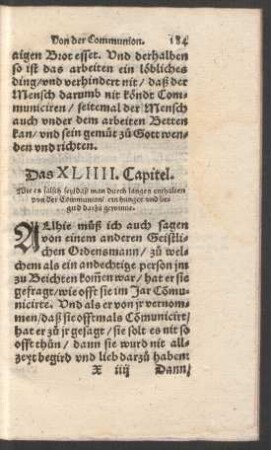 Von der Communion. 184
aigen Brot esset. Vnd derhalben
so ist das arbeiten ein löbliches
ding/vnd verhindert nit / daß der
Mensch darumb nit köndt Com-
municiren / seitemal der Mensch
auch vnder dem arbeiten Betten
kan/ vnd sein gemüt zů Gott wen-
den vnd richten.
Das XLIIII. Capitel.
Wie es falsch sey/daß man durch langen enthalten
von der Communion/ ein hunger vnd be-
gird darzů gewinne.
ALlhie můß ich auch sagen
von einem anderen Geistli-
chen Ordensmann/ zů wel-
chem als ein andechtige person jm
zu Beichten kom̃en war/ hat er sie
gefragt/ wie offt sie im Jar Cõmu-
nicirte. Vnd als er von jr vernom-
men/ daß sie offtmals Cõmunicirt/
hat er zů jr gesagt/ sie solt es nit so
offt thůn/ dann sie wurd nit all-
zeyt begird vnd lieb darzů haben:
X iiij Dann/